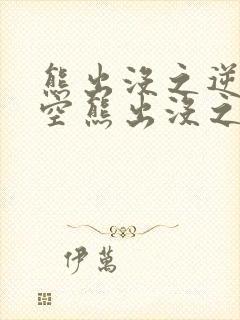 熊出没之逆
空熊出没之
伊萬